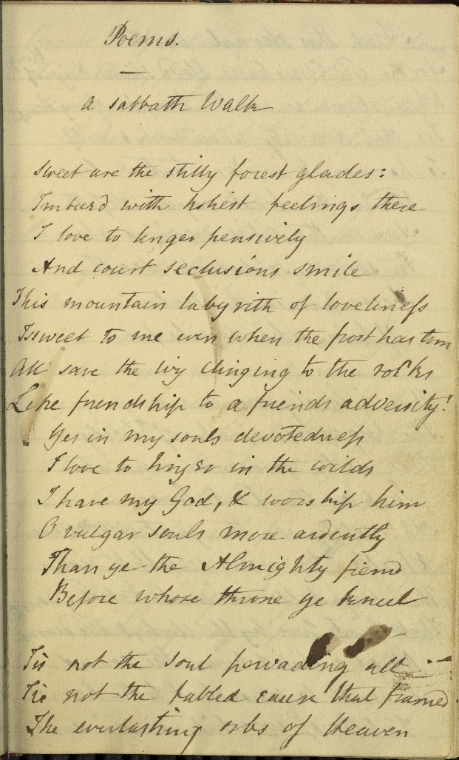 Poems.
—
A Sabbath Walk
Sweet are the stilly forest glades:
Imbued with holiest feelings there
I love to linger pensively
And court seclusions smile
This mountain labyrith of loveliness
Is sweet to me even when the frost has torn
All save the ivy clinging to the rocks
Like friendship to a friends adversity!
Yes in my souls devotedness
I love to linger in the wilds
I have my God, & worship him
O vulgar souls more ardently
Than ye the Almighty fiend
Before whose throne ye kneel
Tis not the soul pervading all
Tis not the fabled cause that framed
The everlasting orbs of Heaven